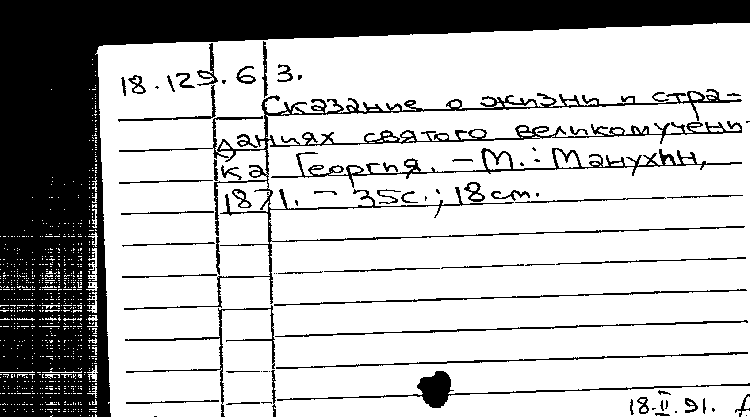 18.129.6.3.
Сказание о жизни и стра=
даниях святого великомучени-
ка Георгия. – М.: Манухин,
1871. – 35с.; 18см.
18.II.91.